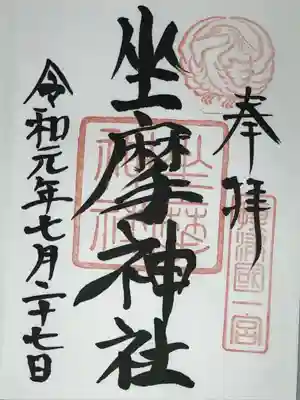 奉拝
摂津國一宮
坐摩神社
坐摩神社
令和元年七月二十七日